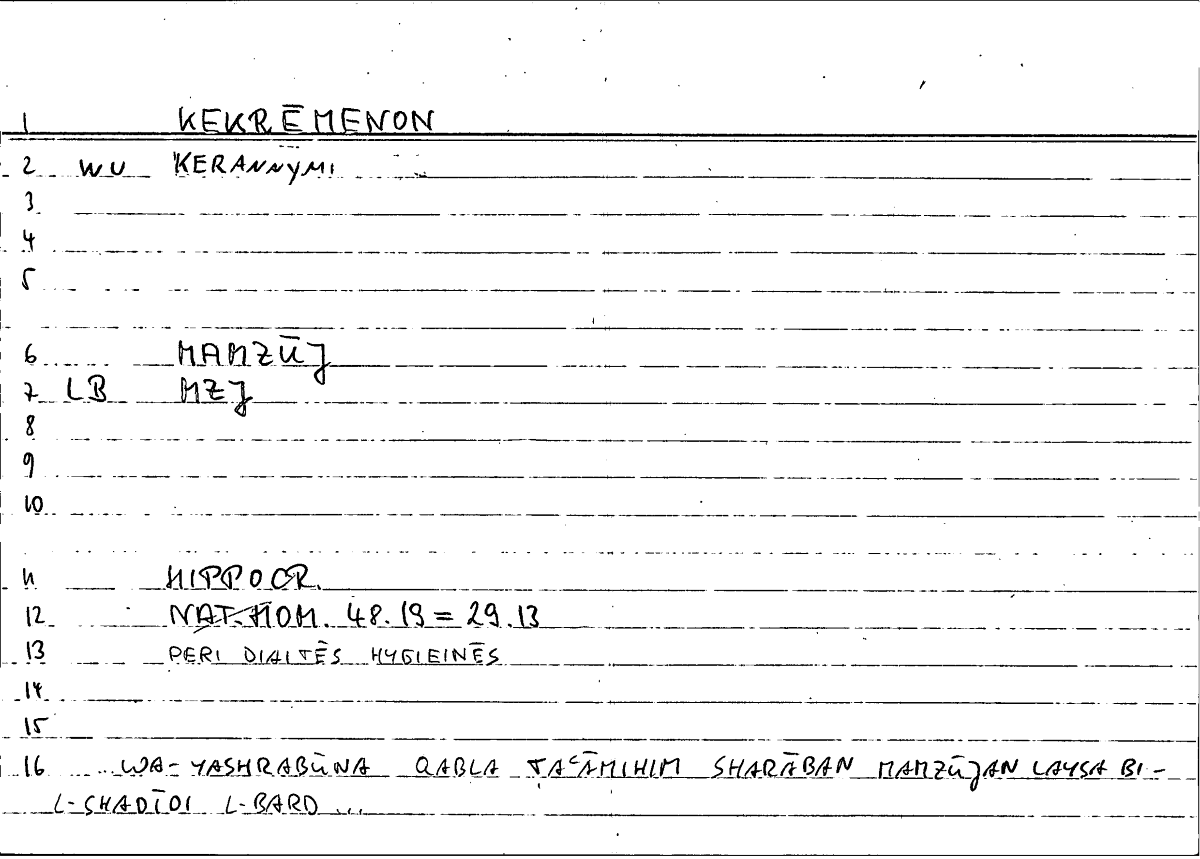 1 KEKRĒMENON
2 WU KERANNYMI
3
4
5
6 MAMZŪJ
7 LB MZJ
8
9
10
11 HIPPOCR.
12 NAT. HOM. 48.19 = 29.13
13 PERI DIAITĒS HYGIEINĒS
14
15
16 ... WA-YASHRABŪNA QABLA ṬAʿĀMIHIM SHARĀBAN MAMZŪJAN LAYSA BI-
L-SHADĪDI L-BARD ...